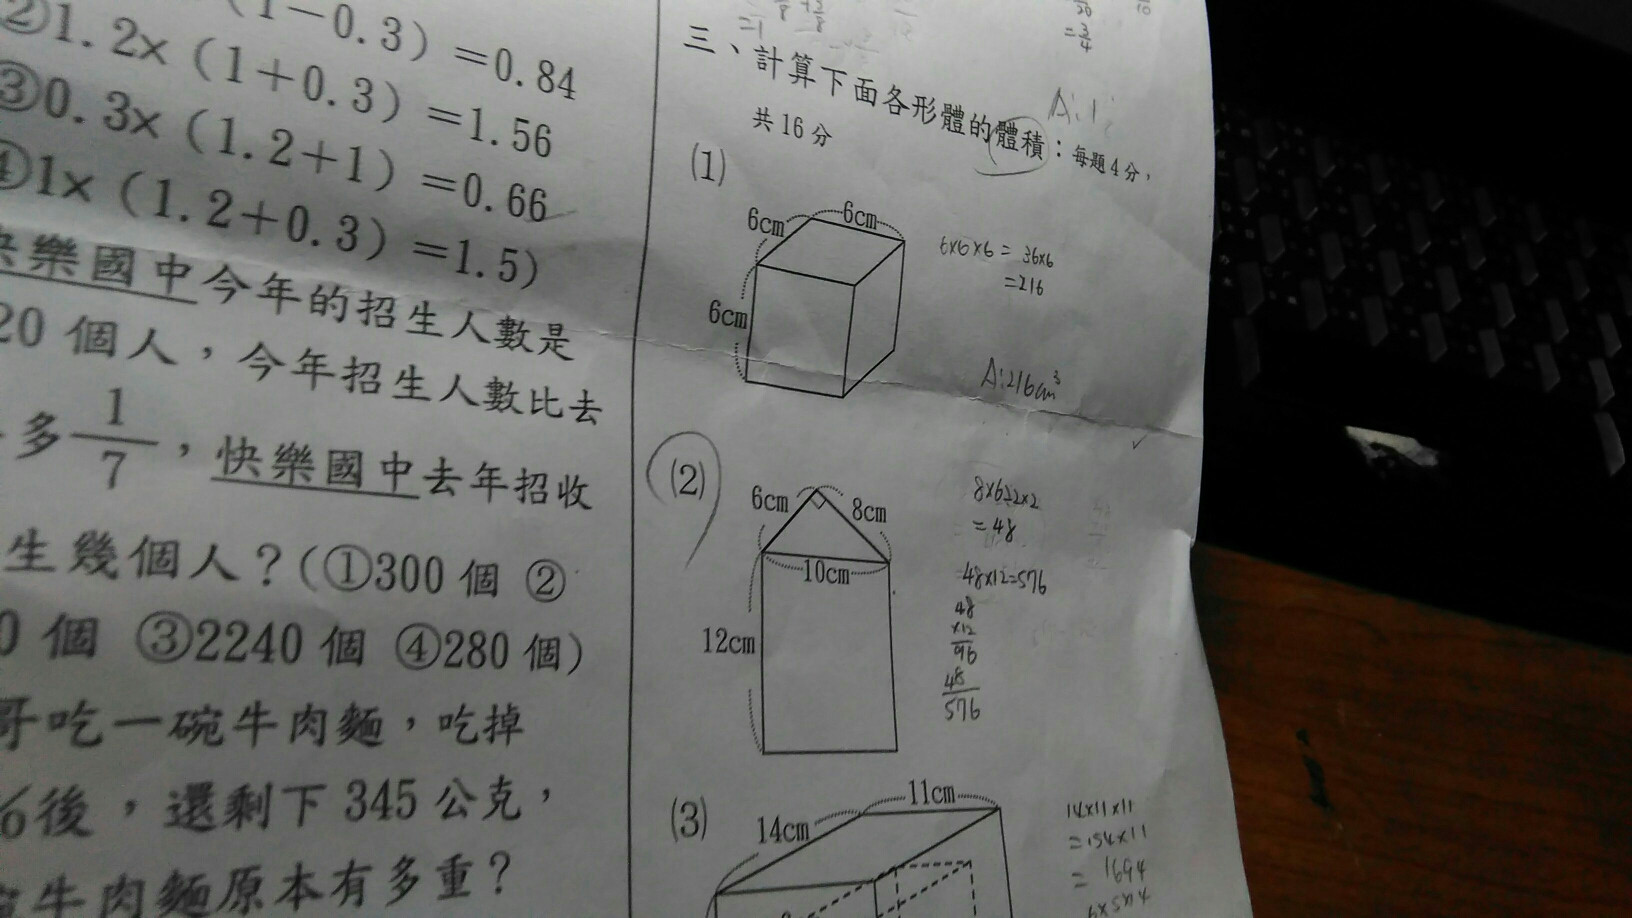 (1-0.3)=0.84
②1.2x(1+0.3)=1.56
③0.3x(1.2+1)=0.66
④1x(1.2+0.3)=1.5)
快樂國中今年的招生人數是
20 個人，今年招生人數比去
多1/7，快樂國中去年招收
生幾個人？(①300 個 ②
0 個 ③2240 個 ④280 個)
哥吃一碗牛肉麵，吃掉
%後，還剩下 345 公克，
牛肉麵原本有多重？
三、計算下面各形體的體積：每題4分，
共16分
(1)
6cm
6cm
6cm
6×6×6 = 36×6
=216
A:216cm³
(2)
6cm
8cm
10cm
12cm
8×6÷2×2
=48
48×12=576
48
×12
96
48
576
(3)
11cm
14cm
14×11×11
=154×11
= 1694